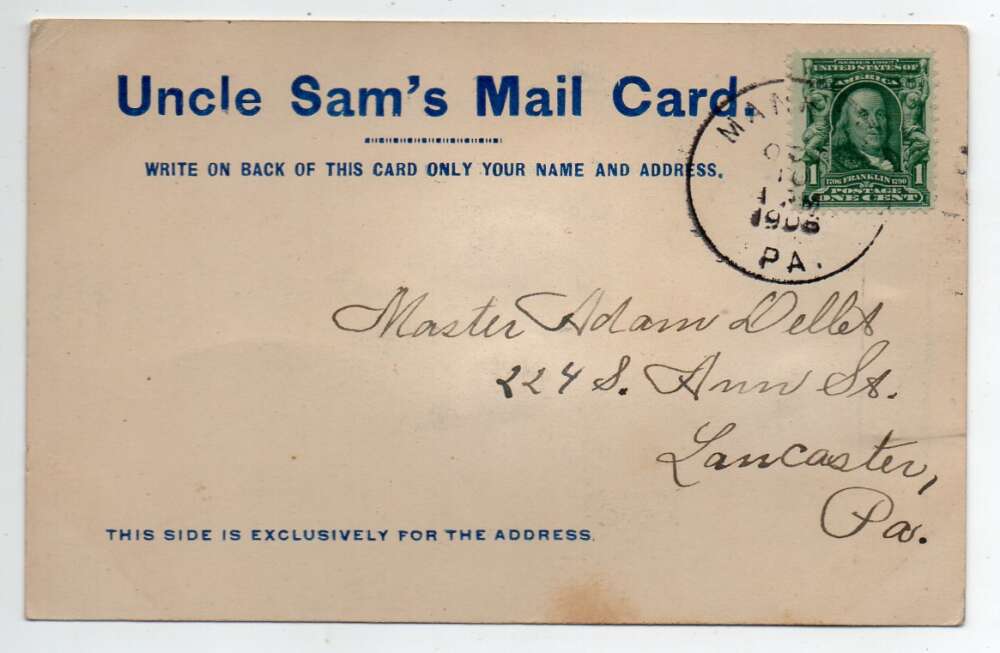 Uncle Sam's Mail Card.
WRITE ON BACK OF THIS CARD ONLY YOUR NAME AND ADDRESS.
SERIES 1902
UNITED STATES OF
AMERICA
1 1706 FRANKLIN 1790 1
POSTAGE
ONE CENT
1908
PA.
Master Adam Dellet
224 S. Ann St.
Lancaster,
Pa.
THIS SIDE IS EXCLUSIVELY FOR THE ADDRESS.